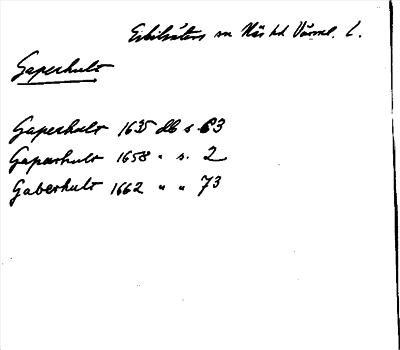 Eskilsäters sn Näs hd Värml. l.
Gaperhult
Gaperhult 1635 db s. 63
Gaparhult 1658 " s. 2
Gaberhult 1662 " " 73